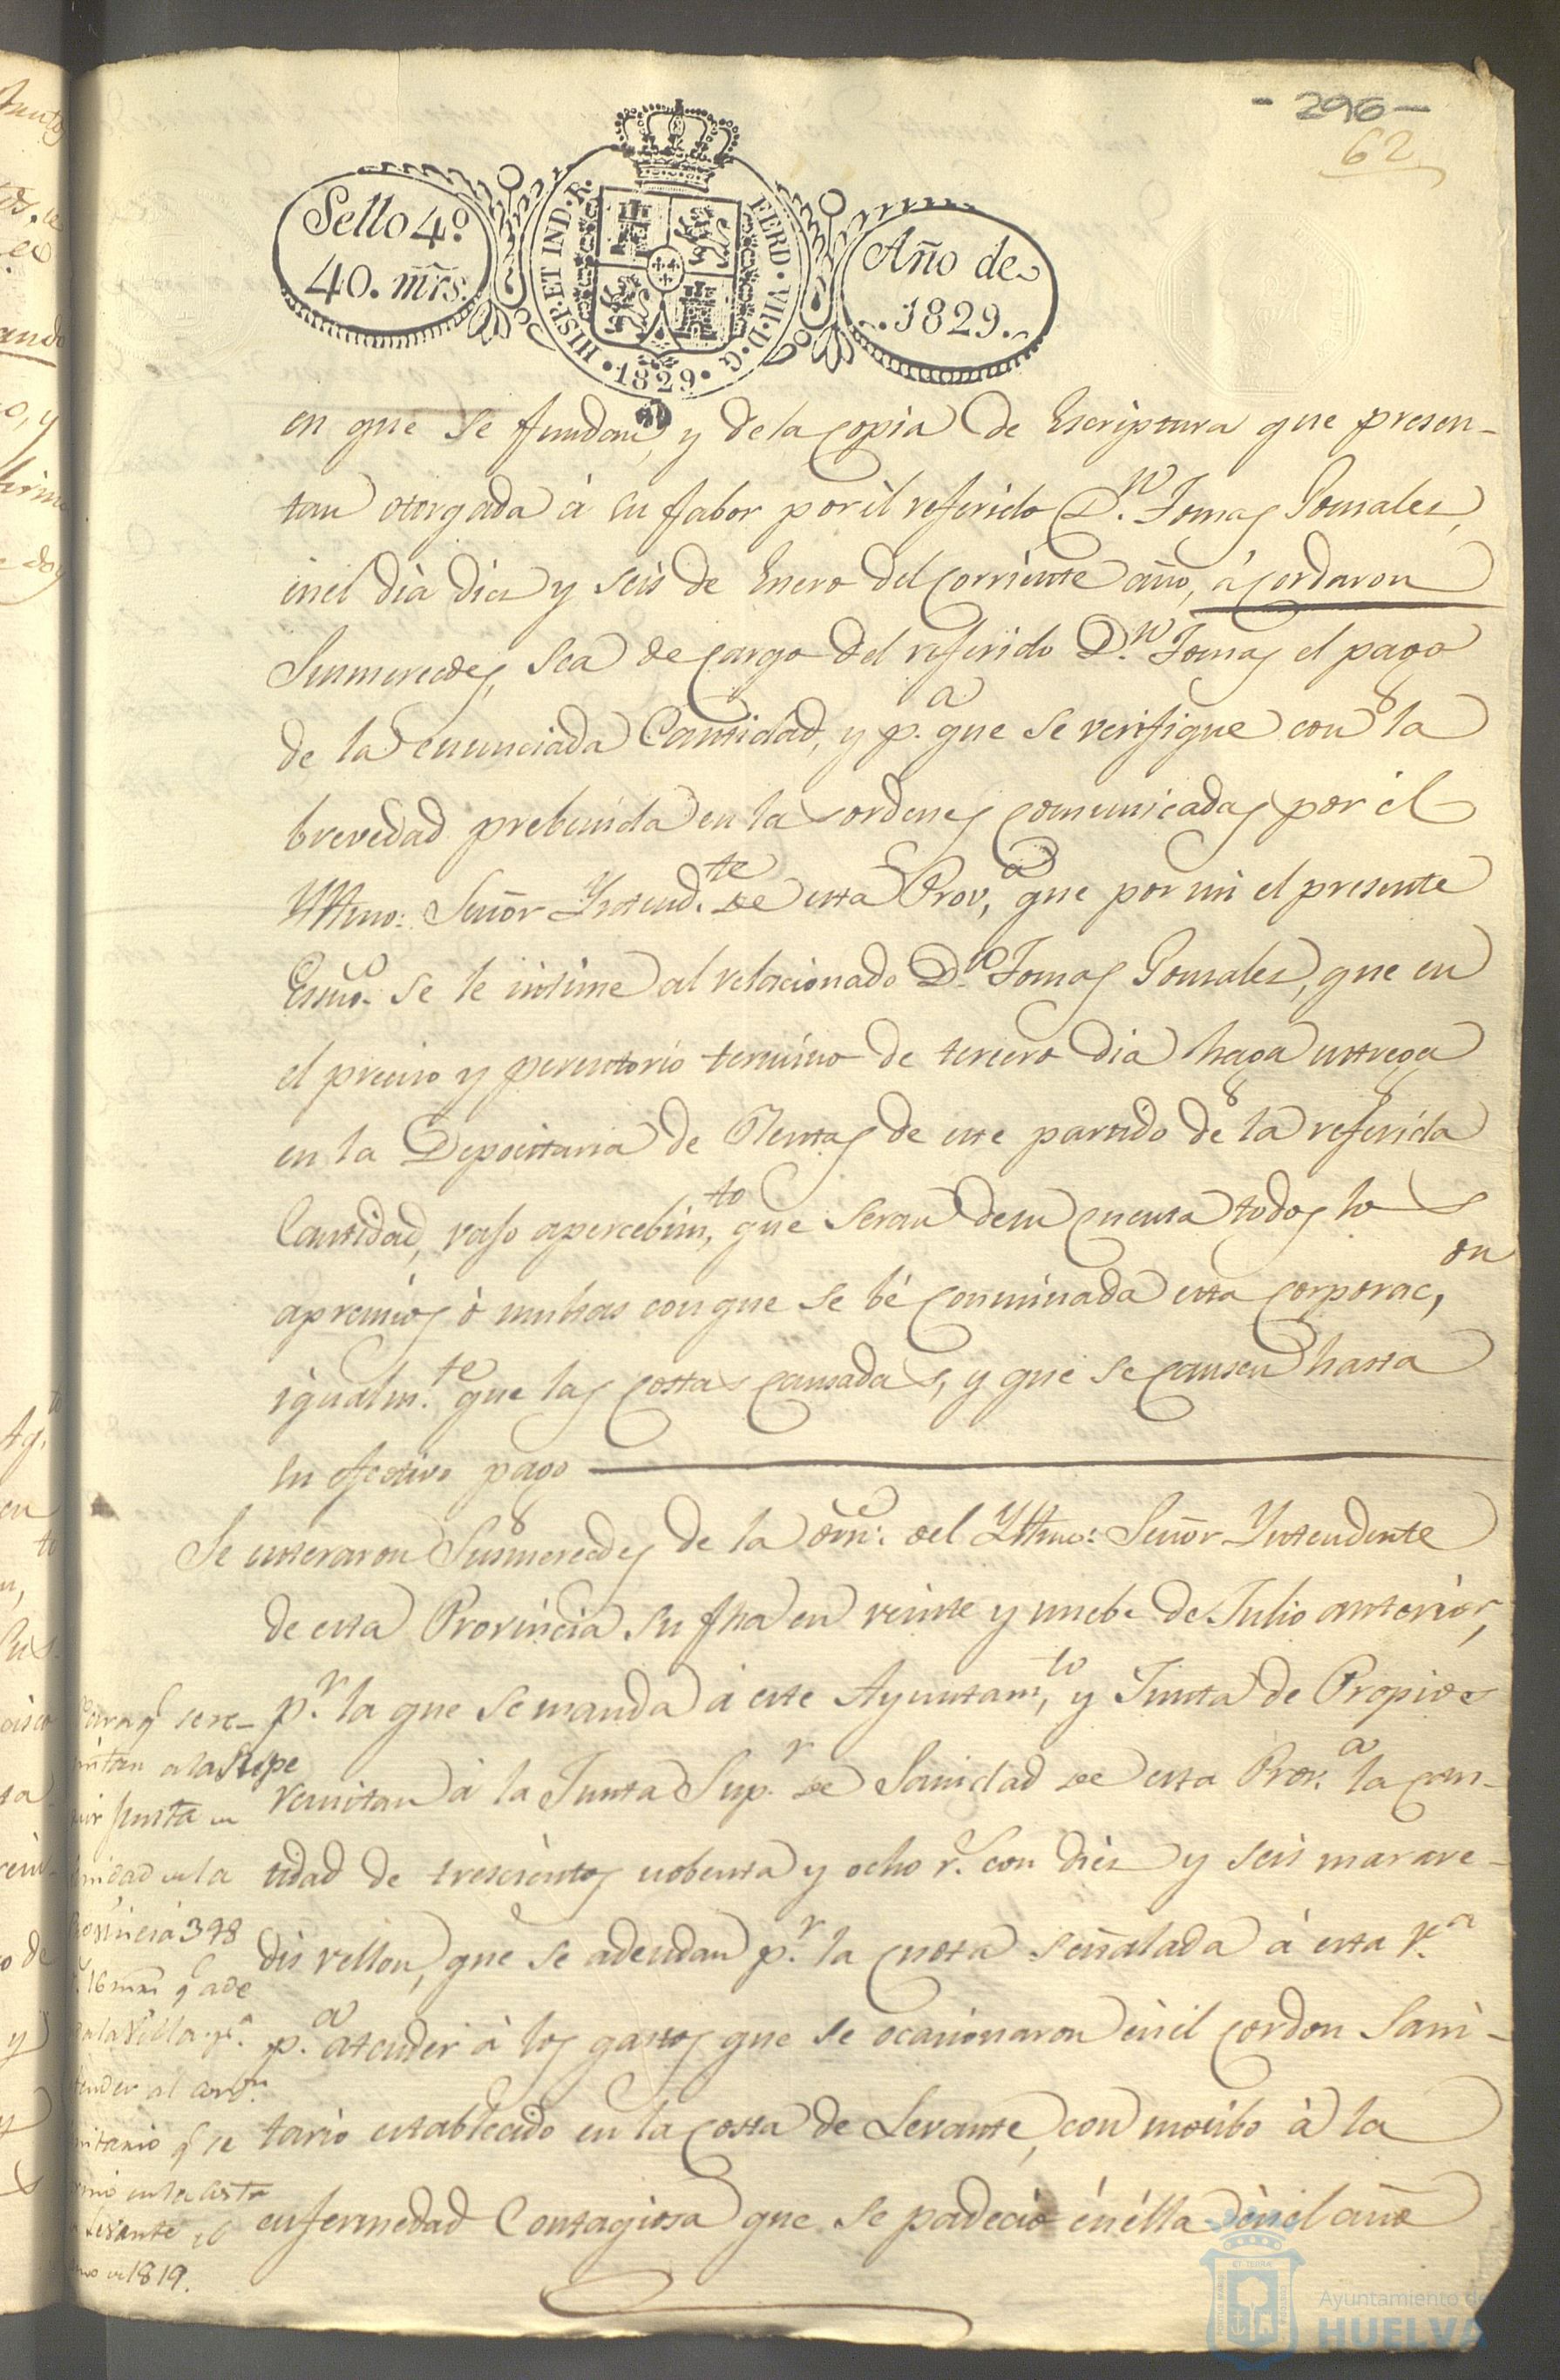 - 296 -
62
Sello 4º.
40. mrs.
HISP. ET IND. R.
FERD. VII. D. G.
• 1829 •
Año de
1829.
en que se fundan, y de la copia de Escriptura que presen-
tan otorgada á su fabor por él referido D.n Tomas Gonsales,
enel dia dies y seis de Enero del corriente año, ácordaron
Susmercedes, sea de cargo del referido D.n Tomas el pago
de la enunciada Cantidad, y p.a que se verifique con la
brevedad prebenida en las ordenes comunicadas por él
Yltmo: Señor Yntend.te de esta Prov,a que por mi el presente
Essno. se le intime al relacionado D.n Tomas Gonsales, que en
el preciso y perentorio termino de tercero dia haga entrega
en la Depocitaria de Rentas de este partido de la referida
Cantidad, vajo apercebim,to que seran desu cuenta todos los
apremios ó multas con que se bé conminada esta corporac,on
igualm.te que las costas causadas, y que se causen hasta
su efectivo pago
Se enteraron Susmercedes de la orn: del Yltmo: Señor Yntendente
de esta Provincia su fha en veinte y nuebe de Julio anterior,
p.r la que se manda á este Ayuntam,to y Junta de Propios
remitan á la Junta Sup.r de Sanidad de esta Prov.a la can-
tidad de trescientos nobenta y ocho r.s con dies y seis marave-
dis vellon, que se adeudan p.r la cuota señalada á esta V.a
p.a atender á los gastos que se ocacionaron en él cordon Sani-
tario establecido en la costa de Levante, con motibo á la
enfermedad Contagiosa que se padeció én élla énel año
Para q.e se re-
mitan a la Supe
rior Junta
nidad en la
Provincia 398
16 mrs q.e ade
a la Villa p.a
tender al cordn.
nitario q.e se
en la Costa
Levante
1819.
Ayuntamiento de
HUELVA